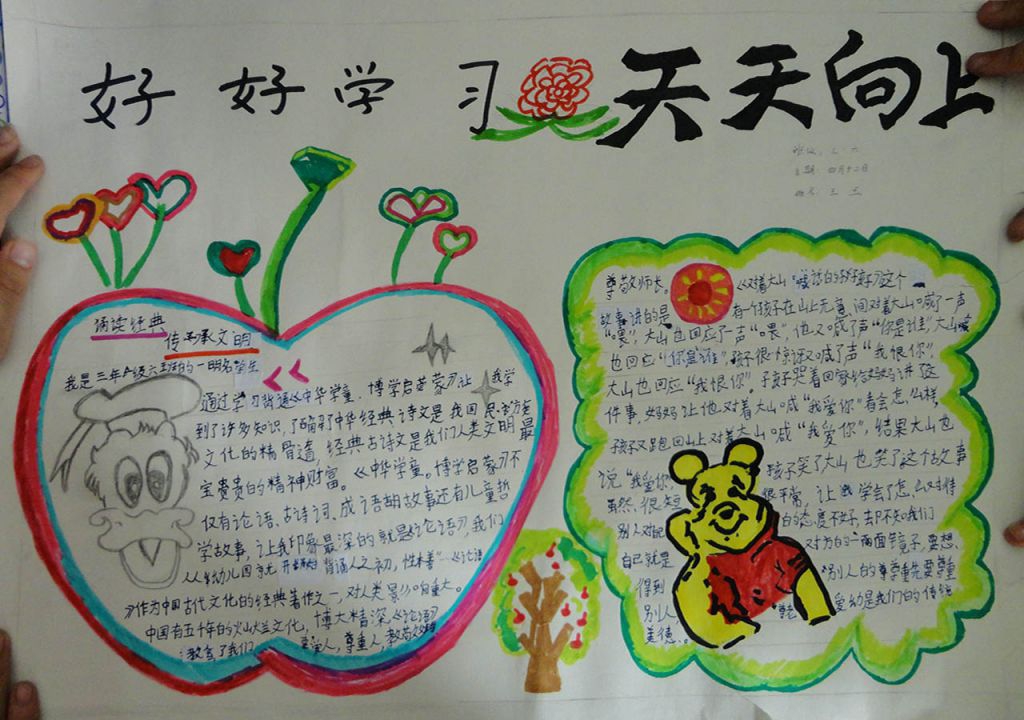 好好学习 天天向上
班级:三·六
日期:四月十二日
姓名:王
诵读经典
传承文明
我是三年级六班的一名学生
通过学习背诵《中华学童。博学启蒙》让我学
到了许多知识,了解了中华经典诗文是我国民
文化的精骨遗,经典古诗文是我们人类文明最
宝贵贵的精神财富。《中华学童。博学启蒙》不
仅有论语、古诗词、成语胡故事还有儿童哲
学故事,让我印象最深的就是《论语》,我们
从幼儿园就开始背诵人之初,性本善…《论语
》作为中国古代文化的经典著作之一,对人类影响重大。
中国有五千年的文化,博大精深《论语》
教会了我们 人,尊重人,
尊敬师长。《对着大山喊话的孩子》这个
故事讲的是有一个孩子在山上无意间对着大山喊了一声
“喂”,大山也回应了一声“喂”,他又喊了声“你是谁”,大山
也回应“你是谁”,孩子很惊讶又喊了声“我恨你”,
大山也回应“我恨你”,孩子哭着回家给妈妈讲这
件事,妈妈让他对着大山喊“我爱你”看会怎么样,
孩子又跑回山上对着大山喊“我爱你”,结果大山也
说“我爱你 孩子笑了大山也笑了这个故事
虽然很短 很平常,让我学会了怎么对待
别人对 的态度不好,却不知我们
自己就是 对方的一面镜子,要想
得到 别人的尊重先要尊重
别人, 爱幼是我们的传统
美德.